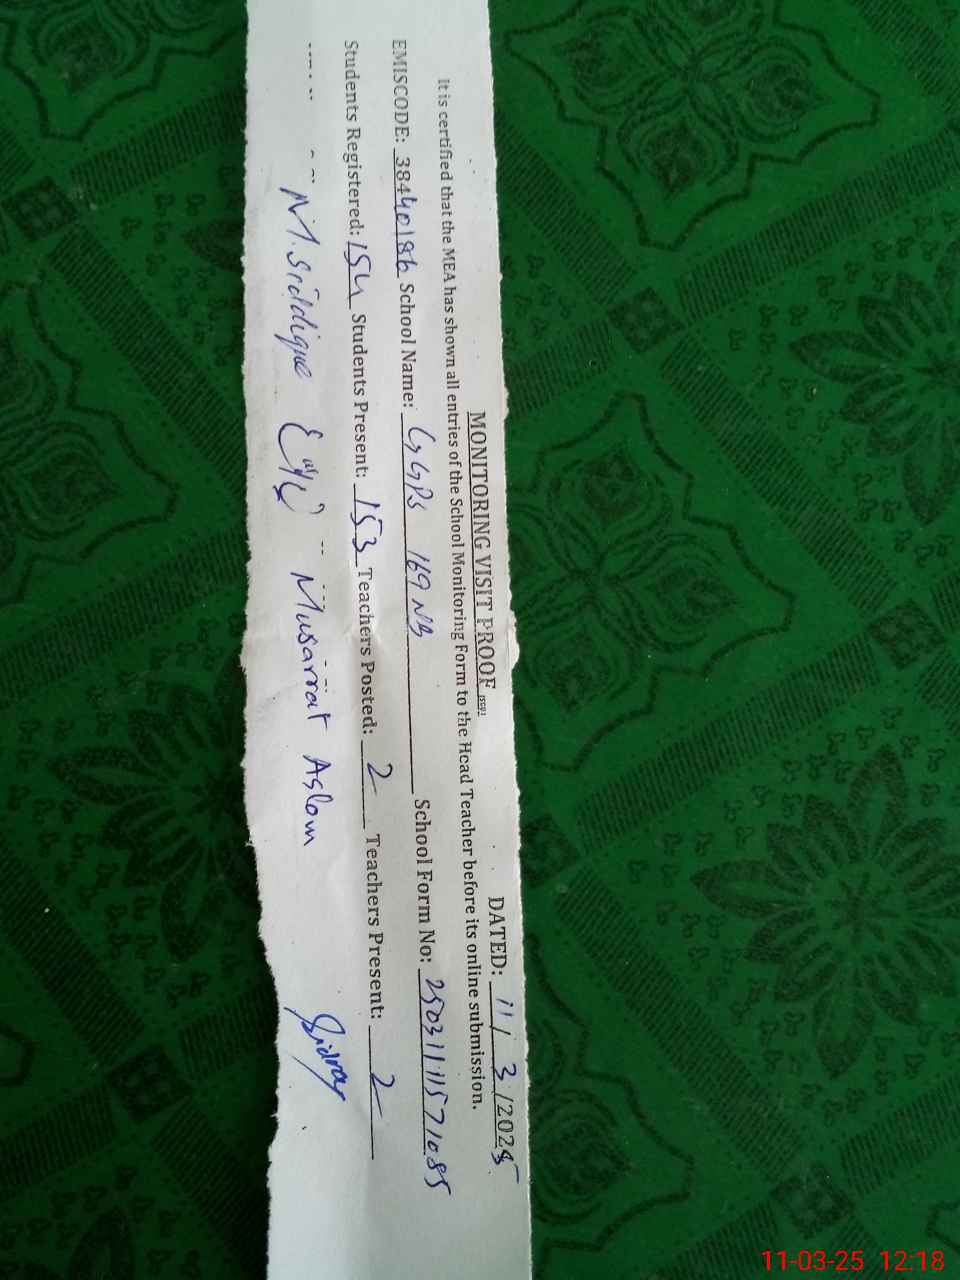 MONITORING VISIT PROOF DATED: 11/3/2025
It is certified that the MEA has shown all entries of the School Monitoring Form to the Head Teacher before its online submission.
EMISCODE: 38440186 School Name: GGPS 169 NB School Form No: 25031111571085
Students Registered: 154 Students Present: 153 Teachers Posted: 2 Teachers Present: 2
M. Siddique Musarrat Aslam Sidra
11-03-25 12:18